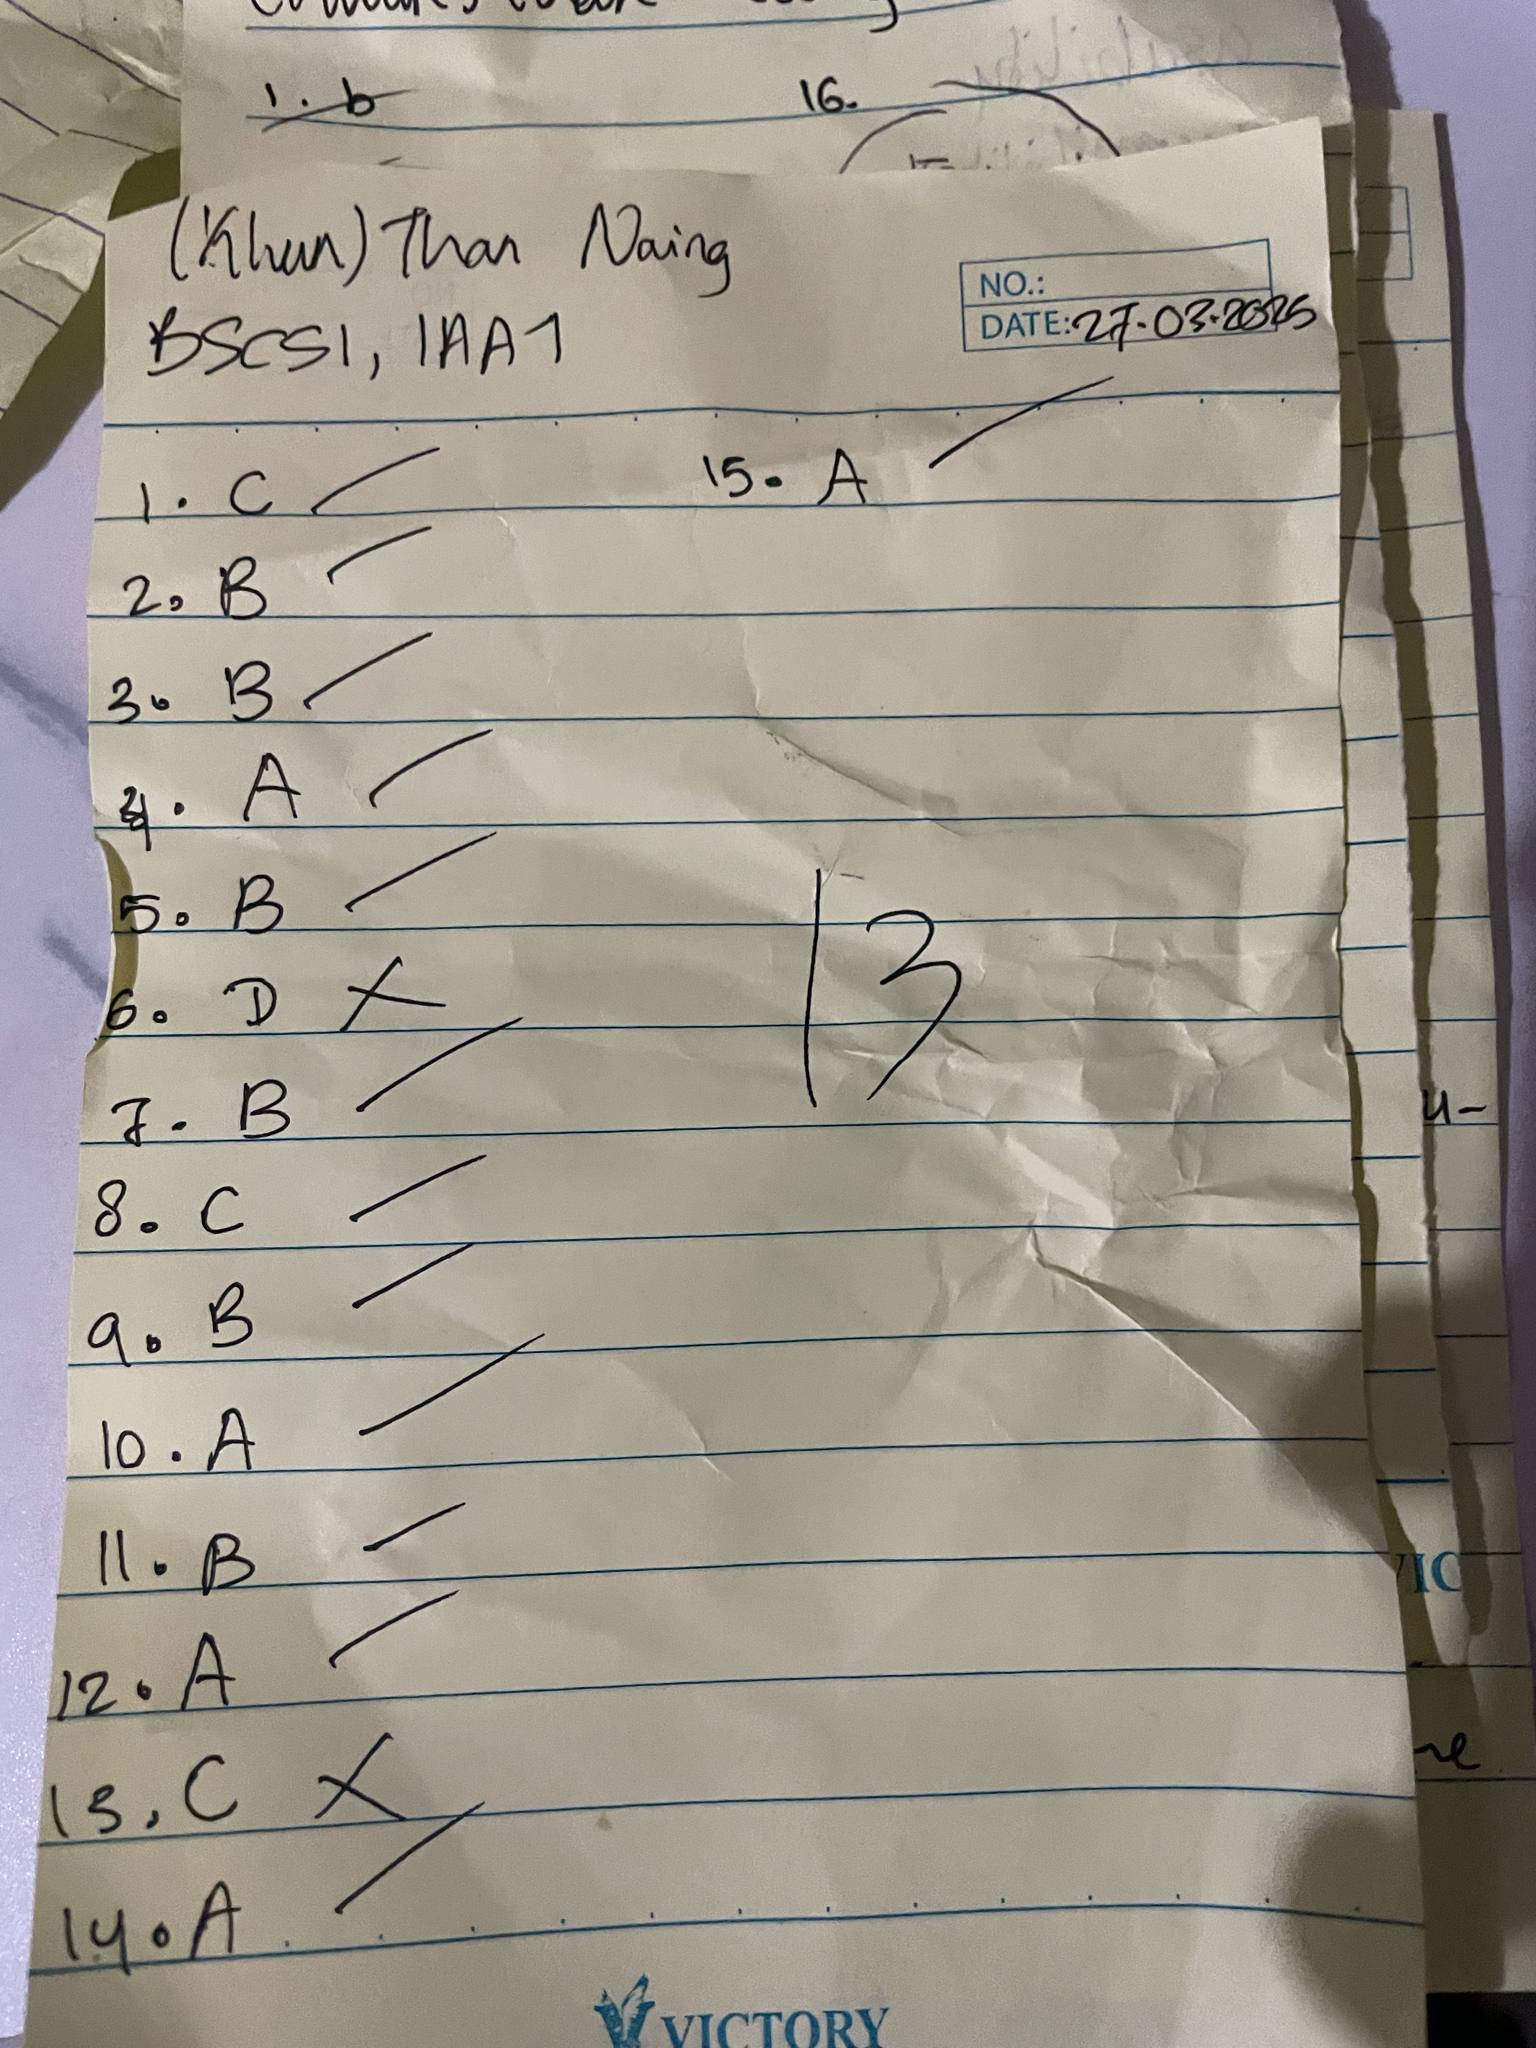 1. b
16.
(Khun) Than Naing
BSCS1, 1AA1
NO.:
DATE: 27.03.2025
1. C
2. B
3. B
4. A
5. B
6. D
7. B
8. C
9. B
10. A
11. B
12. A
13. C
14. A
15. A
13
VICTORY
u-
VIC